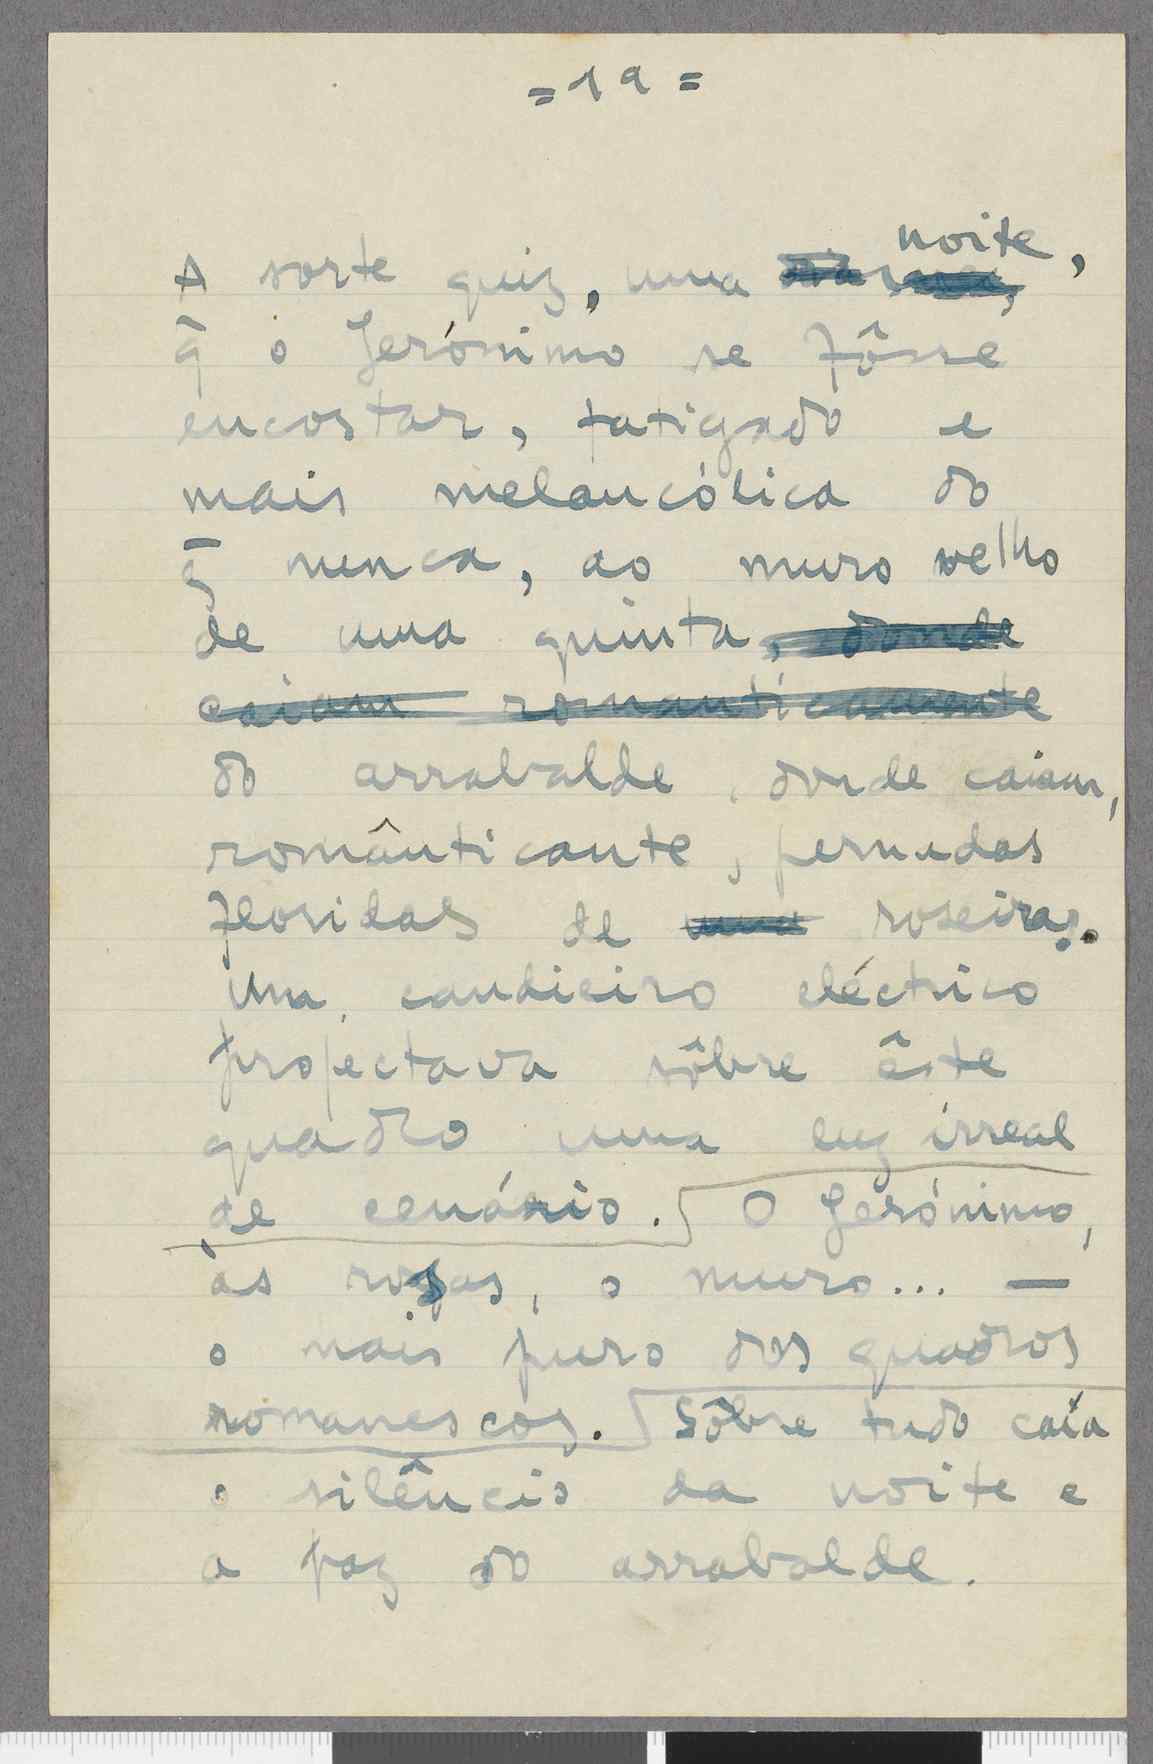 = 19 =
noite,
A sorte quiz, uma
q̄ o Gerónimo se fôsse
encostar, fatigado e
mais melancólica do
q̄ nunca, ao muro velho
de uma quinta, donde
caiam romanticamente
do arrabalde, donde caiam,
românticante, pernadas
floridas de uma roseiras.
Um candieiro eléctrico
projectava sôbre êste
quadro uma luz irreal
de cenário. O Gerónimo,
às rosas, o muro... —
o mais puro dos quadros
romanescos. Sôbre tudo caía
o silêncio da noite e
a paz do arrabalde.